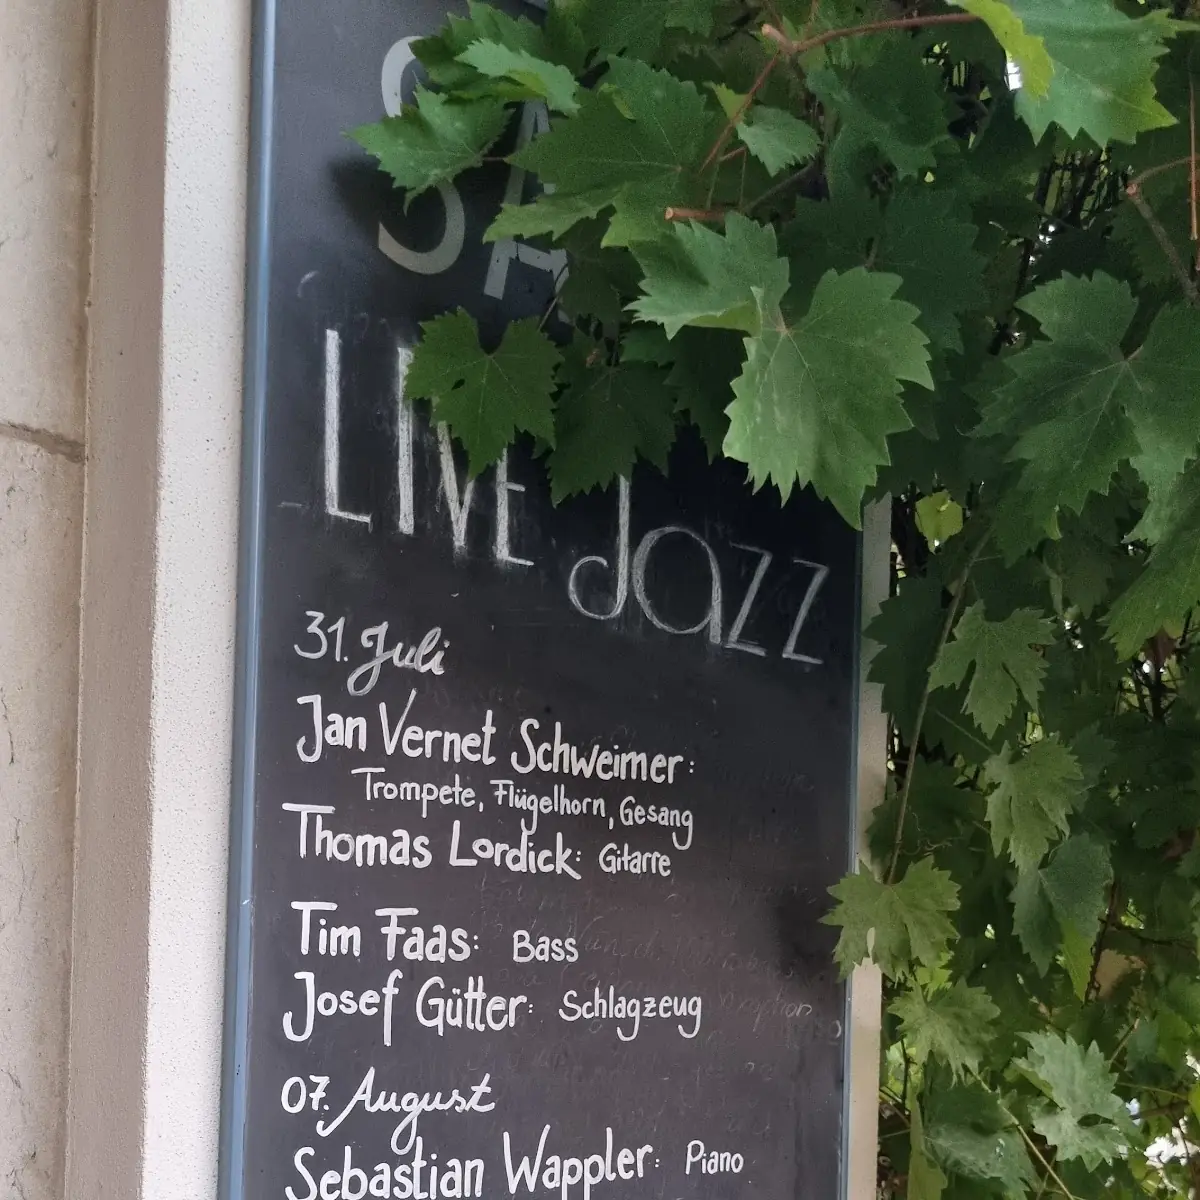 SA
LIVE Jazz
31. Juli
Jan Vernet Schweimer:
Trompete, Flügelhorn, Gesang
Thomas Lordick: Gitarre
Tim Faas: Bass
Josef Gütter: Schlagzeug
07. August
Sebastian Wappler: Piano